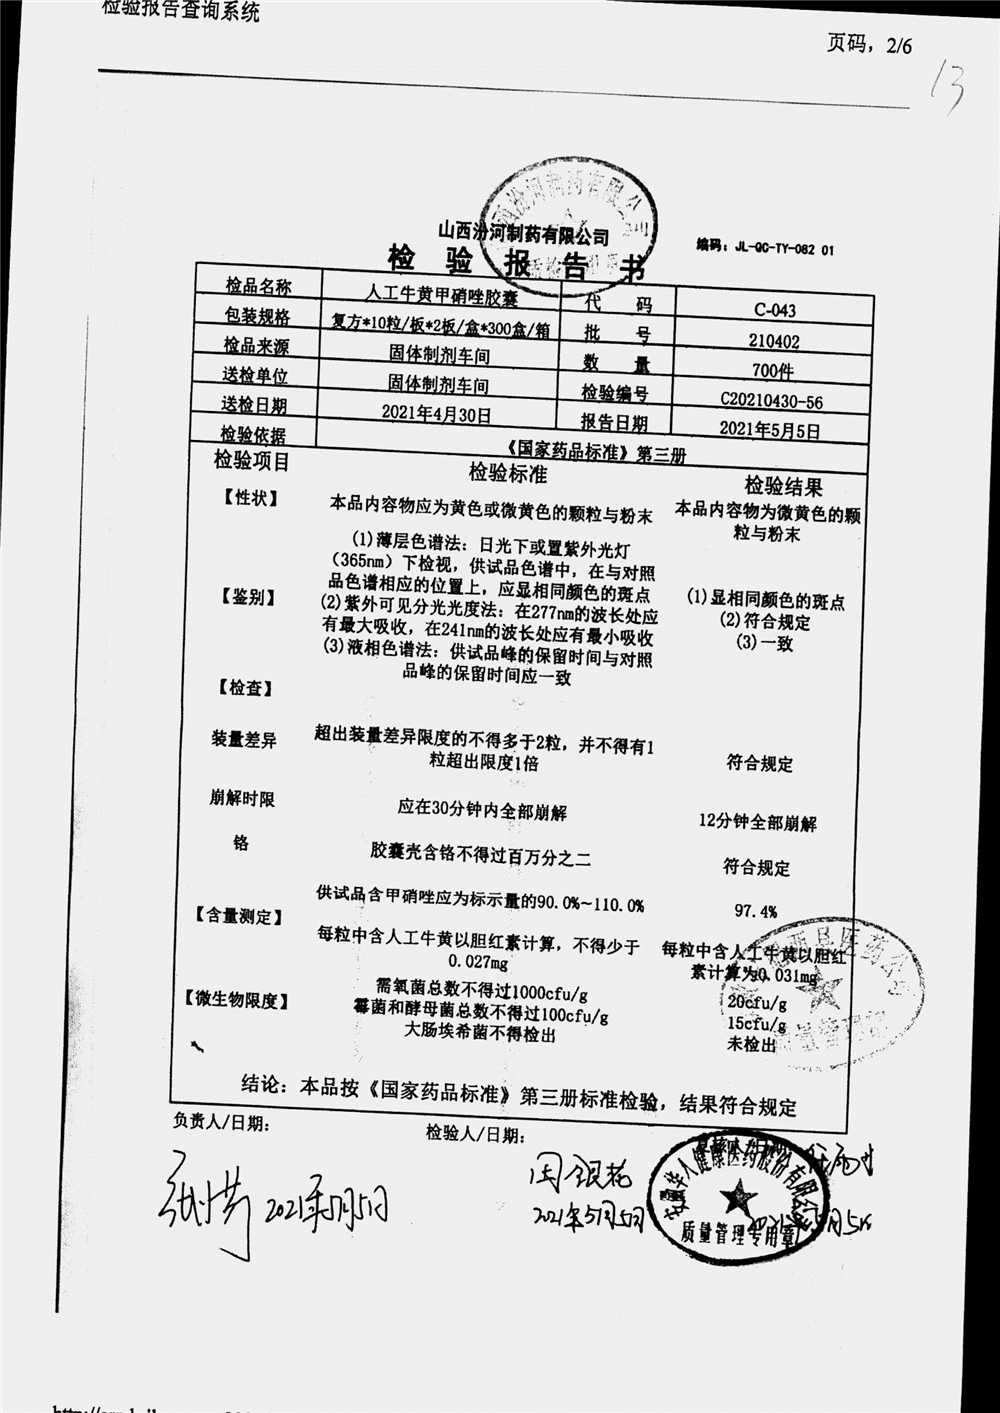 检验报告查询系统
页码，2/6
13
山西汾河制药有限公司
编码：JL-QC-TY-082 01
检验报告书
检品名称 人工牛黄甲硝唑胶囊 代码 C-043
包装规格 复方*10粒/板*2板/盒*300盒/箱 批号 210402
检品来源 固体制剂车间 数量 700件
送检单位 固体制剂车间 检验编号 C20210430-56
送检日期 2021年4月30日 报告日期 2021年5月5日
检验依据 《国家药品标准》第三册
检验项目 检验标准 检验结果
【性状】 本品内容物应为黄色或微黄色的颗粒与粉末 本品内容物为微黄色的颗
粒与粉末
(1)薄层色谱法：日光下或置紫外光灯
（365nm）下检视，供试品色谱中，在与对照
品色谱相应的位置上，应显相同颜色的斑点
【鉴别】 (2)紫外可见分光光度法：在277nm的波长处应
有最大吸收，在241nm的波长处应有最小吸收
(3)液相色谱法：供试品峰的保留时间与对照
品峰的保留时间应一致
(1)显相同颜色的斑点
(2)符合规定
(3)一致
【检查】
装量差异 超出装量差异限度的不得多于2粒，并不得有1
粒超出限度1倍 符合规定
崩解时限 应在30分钟内全部崩解 12分钟全部崩解
铬 胶囊壳含铬不得过百万分之二 符合规定
供试品含甲硝唑应为标示量的90.0%~110.0% 97.4%
【含量测定】
每粒中含人工牛黄以胆红素计算，不得少于
0.027mg
每粒中含人工牛黄以胆红
素计算为0.031mg
需氧菌总数不得过1000cfu/g 20cfu/g
【微生物限度】 霉菌和酵母菌总数不得过100cfu/g 15cfu/g
大肠埃希菌不得检出 未检出
结论：本品按《国家药品标准》第三册标准检验，结果符合规定
负责人/日期：
检验人/日期：
2021年5月5日
周银花
2021年5月5日
2021年5月5日
质量管理专用章